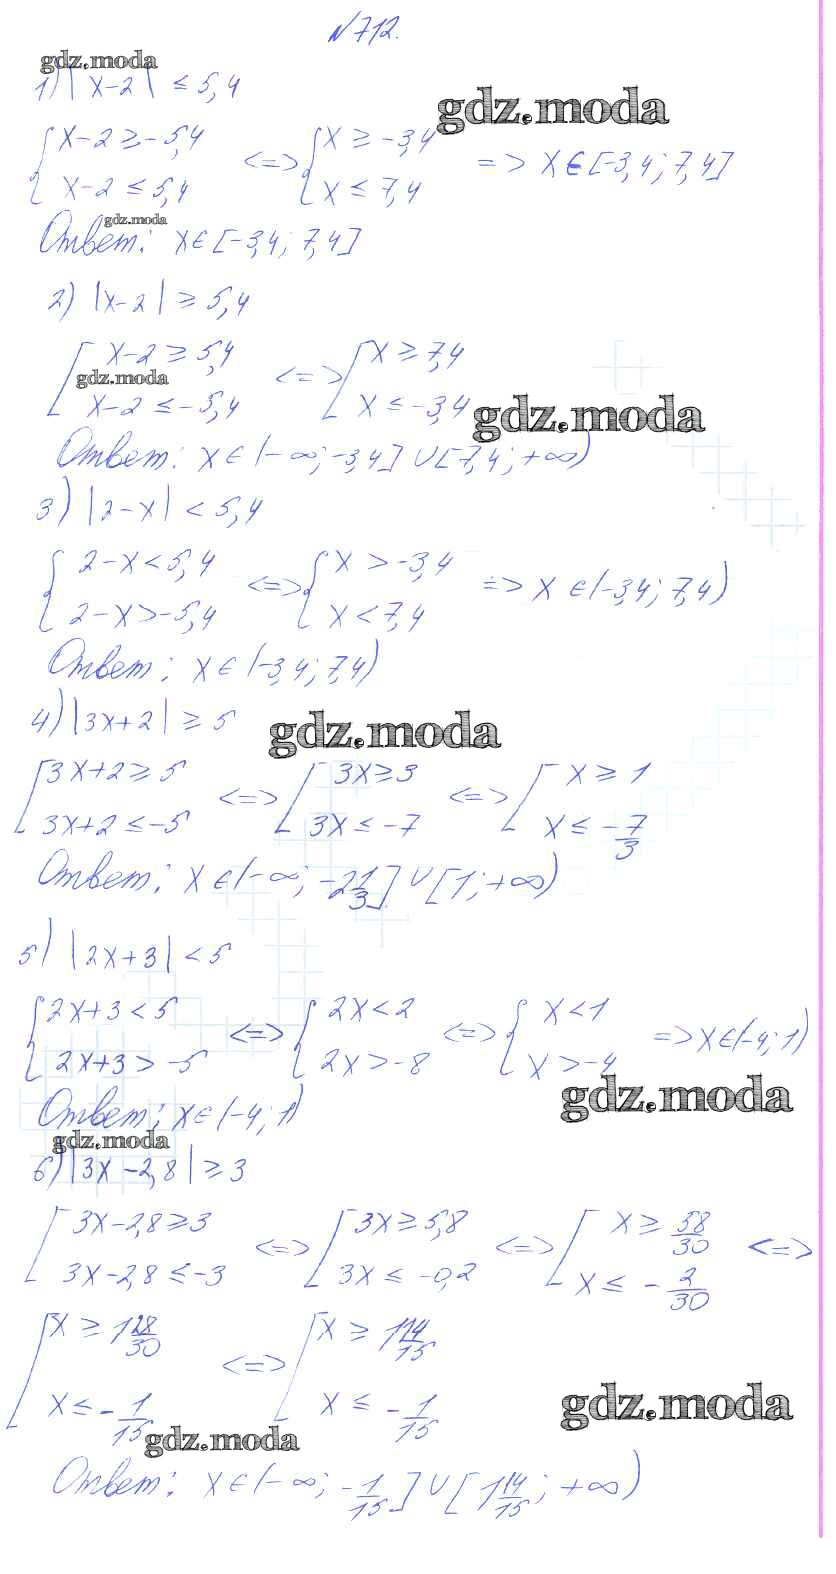 N712.
gdz.moda
1) |x-2| ≤ 5,4
gdz.moda
{x-2 ≥ -5,4 <=> {x ≥ -3,4 => x∈[-3,4; 7,4]
x-2 ≤ 5,4 x ≤ 7,4
gdz.moda
Ответ: x∈[-3,4; 7,4]
2) |x-2| ≥ 5,4
[x-2 ≥ 5,4 <=> [x ≥ 7,4
gdz.moda
x-2 ≤ -5,4 x ≤ -3,4
gdz.moda
Ответ: x∈(-∞; -3,4]∪[7,4; +∞)
3) |2-x| < 5,4
{2-x < 5,4 <=> {x > -3,4 => x∈(-3,4; 7,4)
2-x > -5,4 x < 7,4
Ответ: x∈(-3,4; 7,4)
4) |3x+2| ≥ 5
gdz.moda
[3x+2 ≥ 5 <=> [3x ≥ 3 <=> [x ≥ 1
3x+2 ≤ -5 3x ≤ -7 x ≤ -7/3
Ответ: x∈(-∞; -2 1/3]∪[1; +∞)
5) |2x+3| < 5
{2x+3 < 5 <=> {2x < 2 <=> {x < 1 => x∈(-4; 1)
2x+3 > -5 2x > -8 x > -4
gdz.moda
Ответ: x∈(-4; 1)
gdz.moda
6) |3x-2,8| ≥ 3
[3x-2,8 ≥ 3 <=> [3x ≥ 5,8 <=> [x ≥ 58/30 <=>
3x-2,8 ≤ -3 3x ≤ -0,2 x ≤ -2/30
[x ≥ 1 28/30 <=> [x ≥ 1 14/15
x ≤ -1/15 x ≤ -1/15
gdz.moda
gdz.moda
Ответ: x∈(-∞; -1/15]∪[1 14/15; +∞)